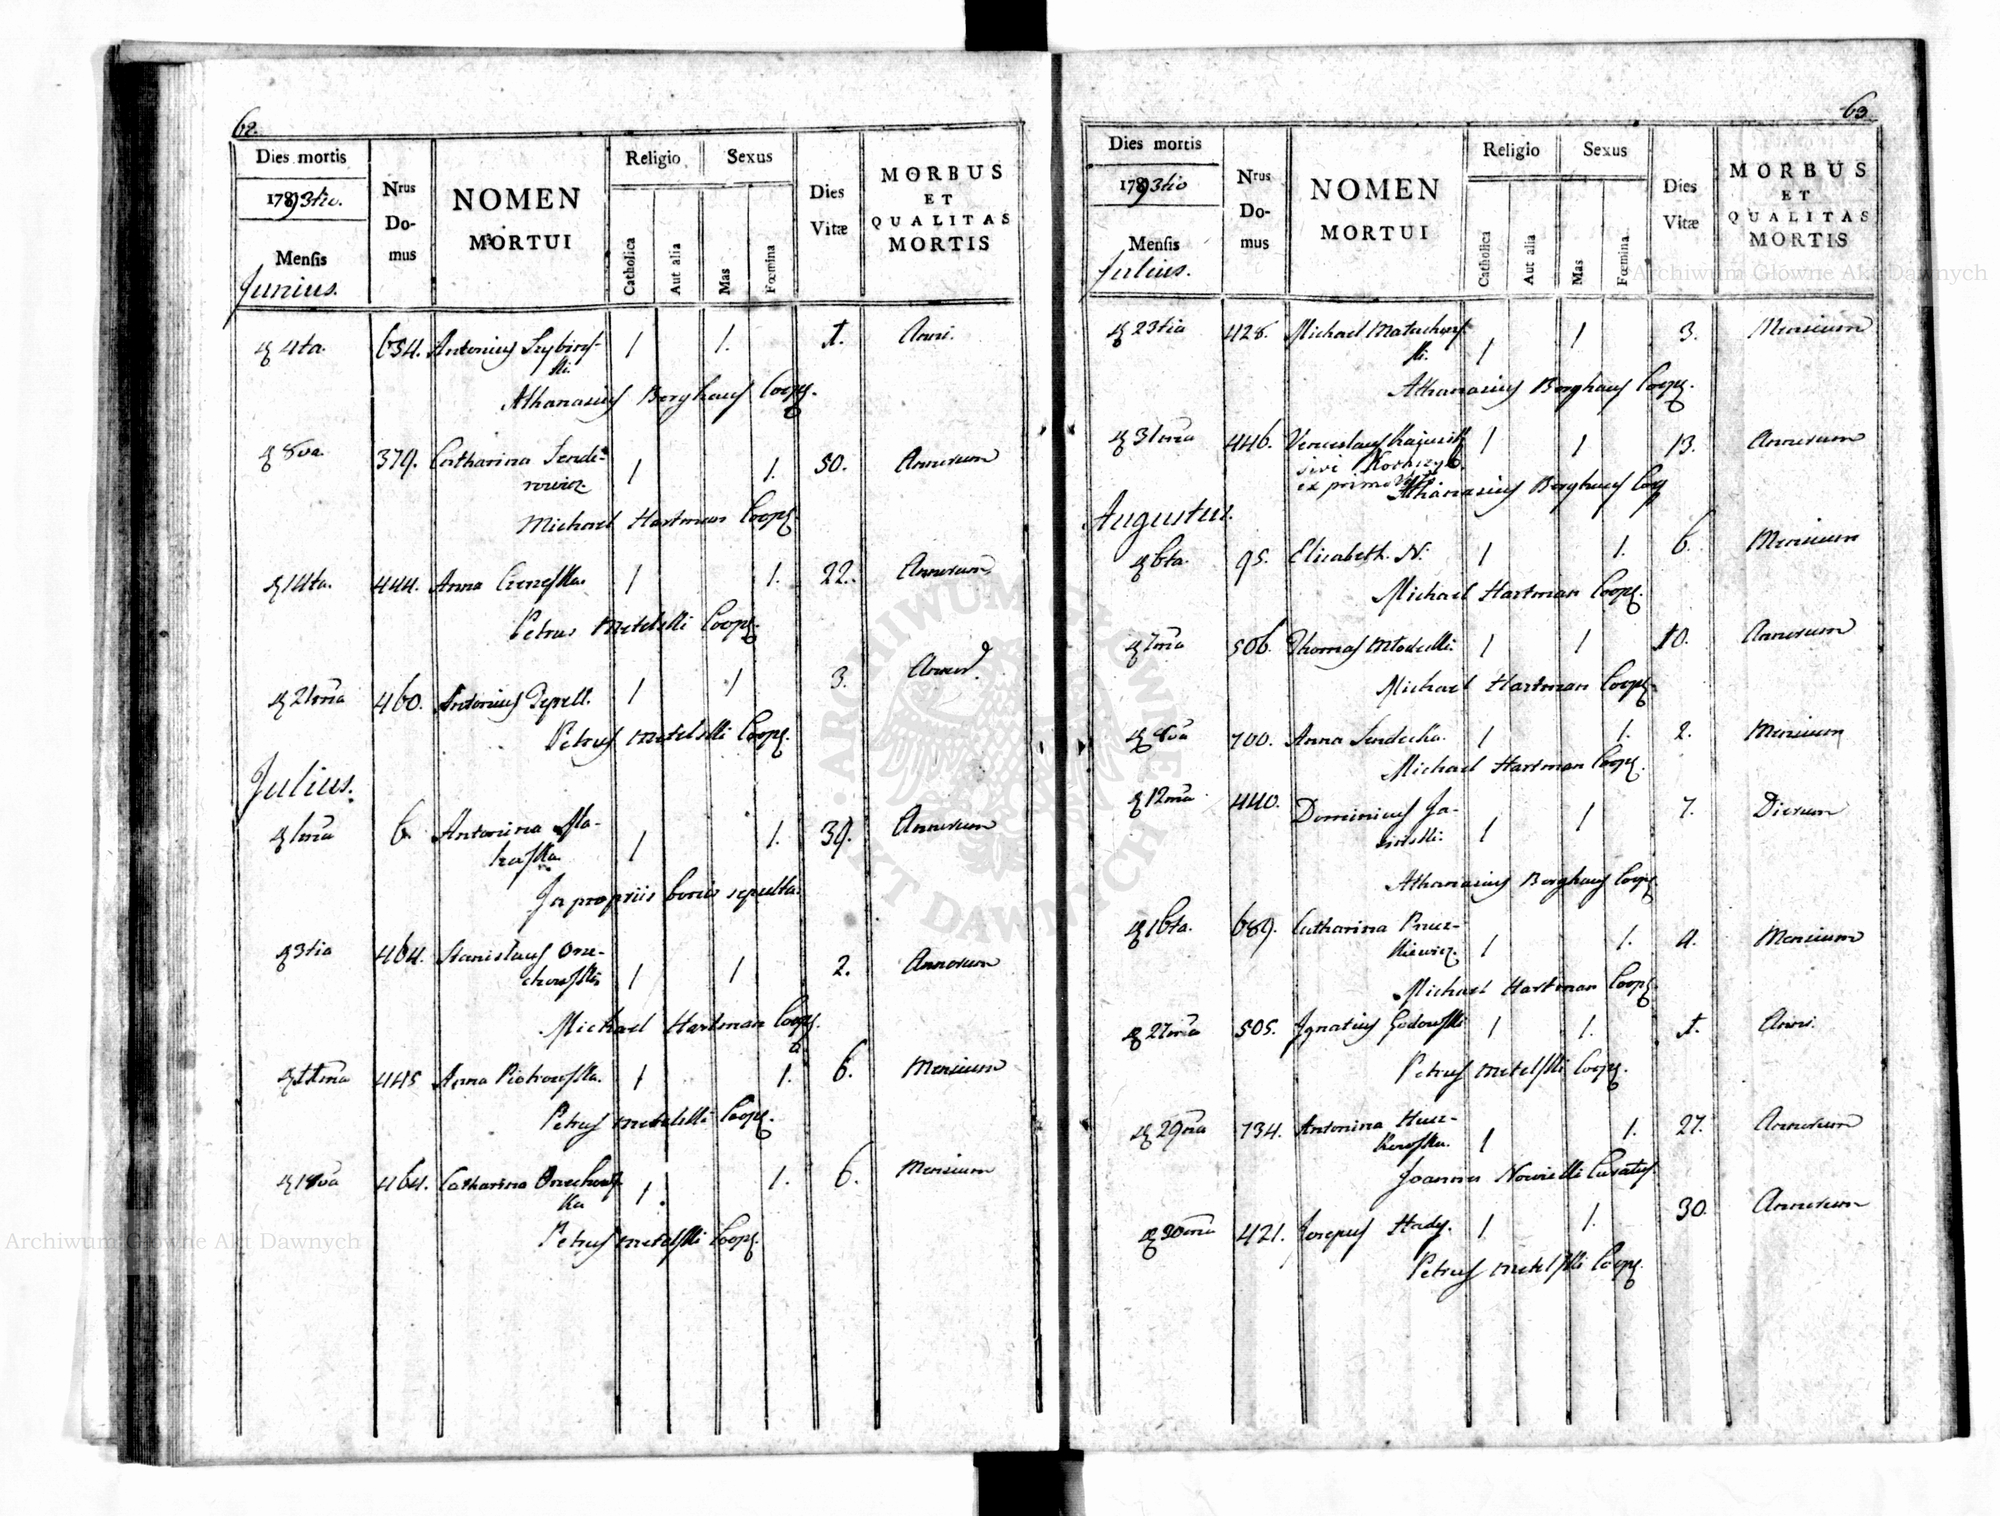 62.
Dies mortis
1793tio.
Mensis
Junius.
Nrus
Do-
mus
NOMEN
MORTUI
Religio
Catholica
Aut alia
Sexus
Mas
Fœmina
Dies
Vitæ
MORBUS
ET
QUALITAS
MORTIS
4ta. 634. Antonius 1 1. 1. Anni.
Athanasius Berghaus Coop.
8va. 379. Catharina Sende-
rowicz. 1 1. 50. Annorum
Michael Hartman Coop.
14ta. 444. Anna 1 1. 22. Annorum
Petrus Metelski Coop.
21ma 460. Antonius 1 1 3. Annor.
Petrus Metelski Coop.
Julius.
1ma 6. Antonina
1 1. 39. Annorum
In propriis bonis sepulta.
3tia 464. Stanislaus Orze-
chowski 1 1 2. Annorum
Michael Hartman Coop.
11ma 445 Anna Piotrowska. 1 1. 6. Mensium
Petrus Metelski Coop.
18va 464. Catharina Orzechows-
ka 1. 1. 6. Mensium
Petrus Metelski Coop.
63
Dies mortis
1793tio
Mensis
Julius.
Nrus
Do-
mus
NOMEN
MORTUI
Religio
Catholica
Aut alia
Sexus
Mas
Fœmina
Dies
Vitæ
MORBUS
ET
QUALITAS
MORTIS
23tia 428. Michael
ki. 1 1 3. Mensium
Athanasius Berghaus Coop.
31ma 446. Venceslaus 1 1 13. Annorum
sive
ex primo
Athanasius Berghaus Coop
Augustus.
6ta. 95. Elisabeth. N. 1 1. 6. Mensium
Michael Hartman Coop.
7ma 506. Thomas 1 1 10. Annorum
Michael Hartman Coop.
8va 700. Anna Sendecka. 1 1. 2. Mensium
Michael Hartman Coop.
12ma 440. Dominicus Ja-
1 1 7. Dierum
Athanasius Berghaus Coop.
16ta. 689. Catharina
kiewicz. 1 1. 4. Mensium
Michael Hartman Coop.
27ma 505. Ignatius Godowski 1 1. 1. Anni.
Petrus Metelski Coop.
29na 734. Antonina
kowska. 1 1. 27. Annorum
Joannes Nowicki Curatus.
30ma 421. Josepus Hady. 1 1. 30. Annorum
Petrus Metelski Coop.
Archiwum Główne Akt Dawnych
Archiwum Główne Akt Dawnych
ARCHIWUM GŁÓWNE AKT DAWNYCH